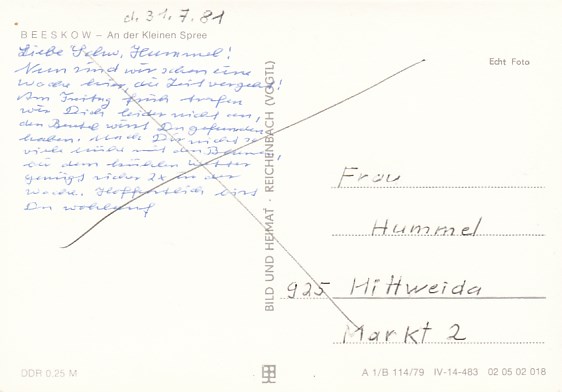 d. 31.7.81
BEESKOW – An der Kleinen Spree
Liebe Schw. Hummel!
Nun sind wir schon eine
Woche hier, die Zeit vergeht!
Am Freitag früh trafen
wir Dich leider nicht an,
den Beutel wirst Du gefunden
haben. Mach Dir nicht so
viele Mühe mit den
bei dem kühlen Wetter
genügt sicher 2x in der
Woche. Hoffentlich bist
Du wohlauf
BILD UND HEIMAT · REICHENBACH (VOGTL)
Echt Foto
Frau
Hummel
925 Mittweida
Markt 2
DDR 0.25 M
A 1/B 114/79 IV-14-483 02 05 02 018